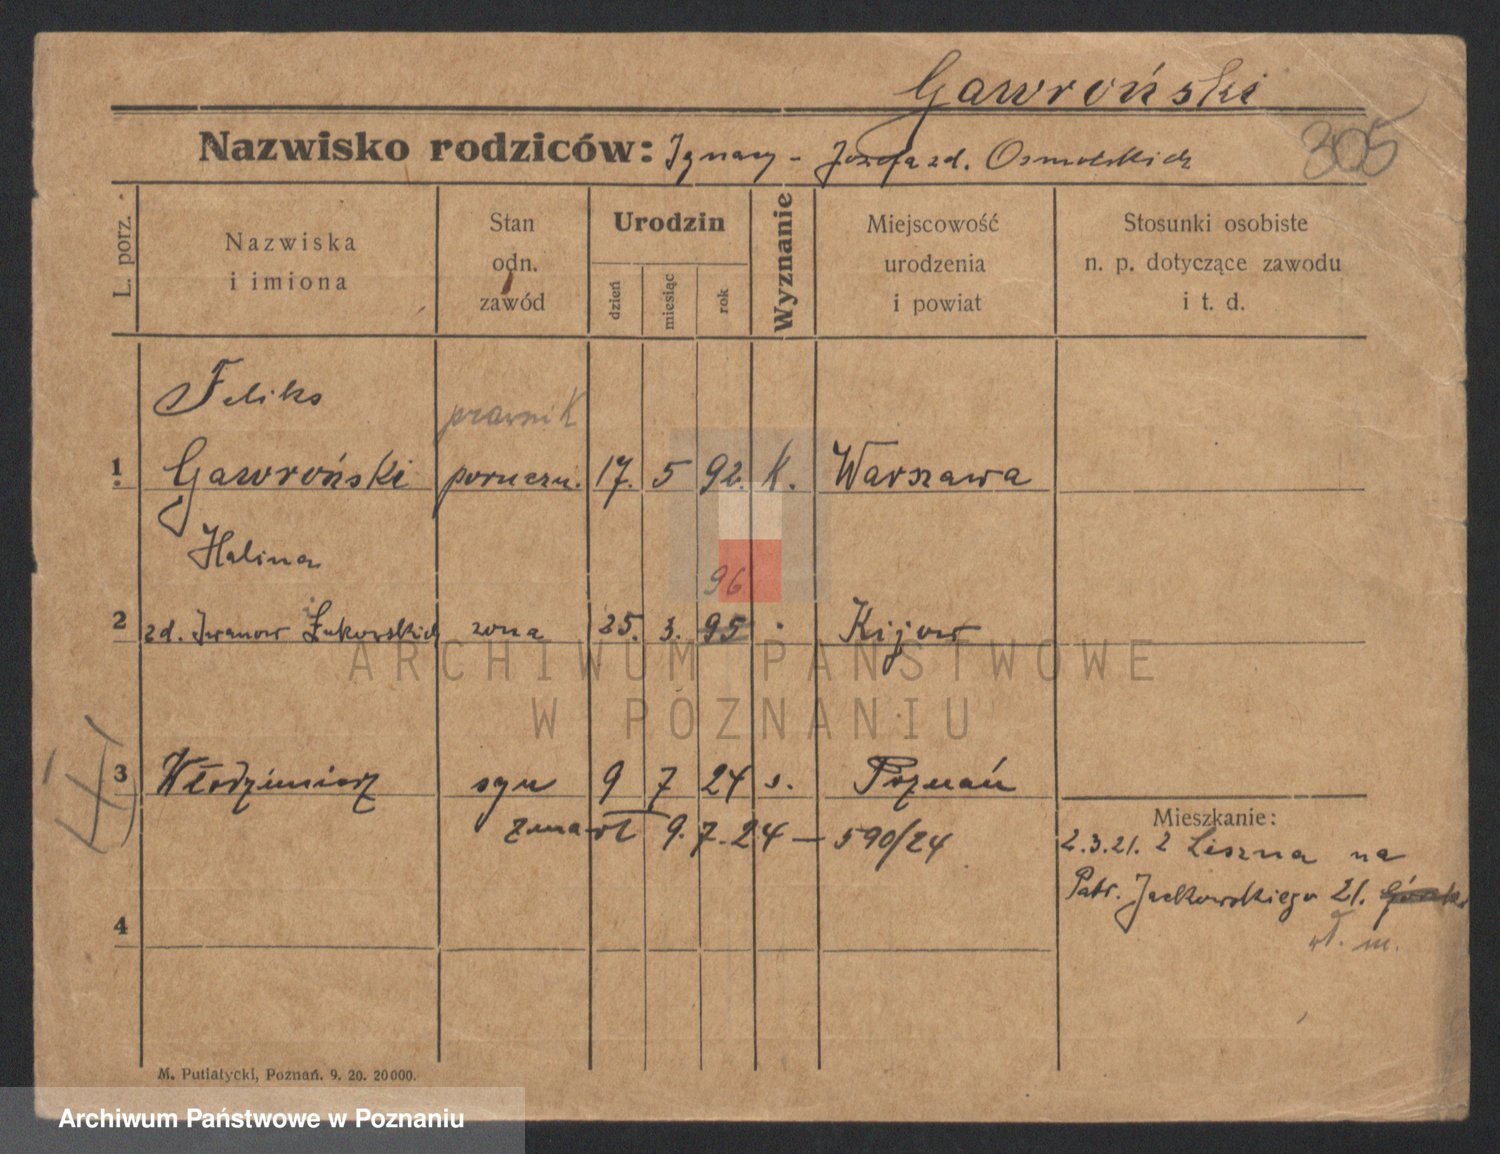 Gawroński
305
Nazwisko rodziców: Ignacy - Józefa zd. Osmolskich
L. porz.
Nazwiska
i imiona
Stan
odn.
zawód
Urodzin
dzień
miesiąc
rok
Wyznanie
Miejscowość
urodzenia
i powiat
Stosunki osobiste
n. p. dotyczące zawodu
i t. d.
Feliks
prawnik
1 Gawroński poruczn. 17. 5 92. K. Warszawa
Halina
96
2 zd. Iwanow Żukowskich żona 25. 3. 95 Kijow
ARCHIWUM PAŃSTWOWE
W POZNANIU
3 Włodzimierz syn 9 7 24 s. Poznań
zmarł 9. 7. 24 — 590/24
Mieszkanie:
2.3.21. z Leszna na
Patr. Jackowskiego 21.
wł. m.
4
M. Putiatycki, Poznań. 9. 20. 20000.
Archiwum Państwowe w Poznaniu